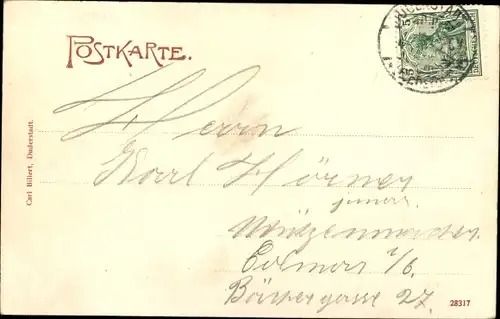 POSTKARTE.
Herrn
Karl Hörner
junior.
Mützenmacher
Colmar i/E.
Bäckergasse 27.
Carl Billert, Duderstadt.
28317